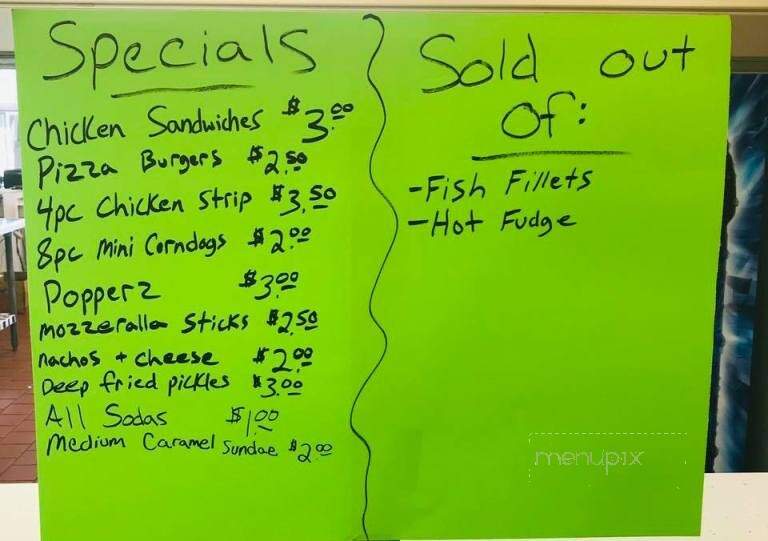 Specials
Chicken Sandwiches $3.00
Pizza Burgers $2.50
4pc Chicken Strip $3.50
8pc Mini Corndogs $2.00
Popperz $3.00
mozzeralla Sticks $2.50
nachos + cheese $2.00
Deep fried pickles $3.00
All Sodas $1.00
Medium Caramel Sundae $2.00
Sold out
of:
-Fish Fillets
-Hot Fudge
menupix